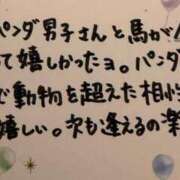 パンダ男子さんと馬が
って嬉しかったョ。パンダ
で動物を超えた相性
嬉しい。次も逢えるの楽